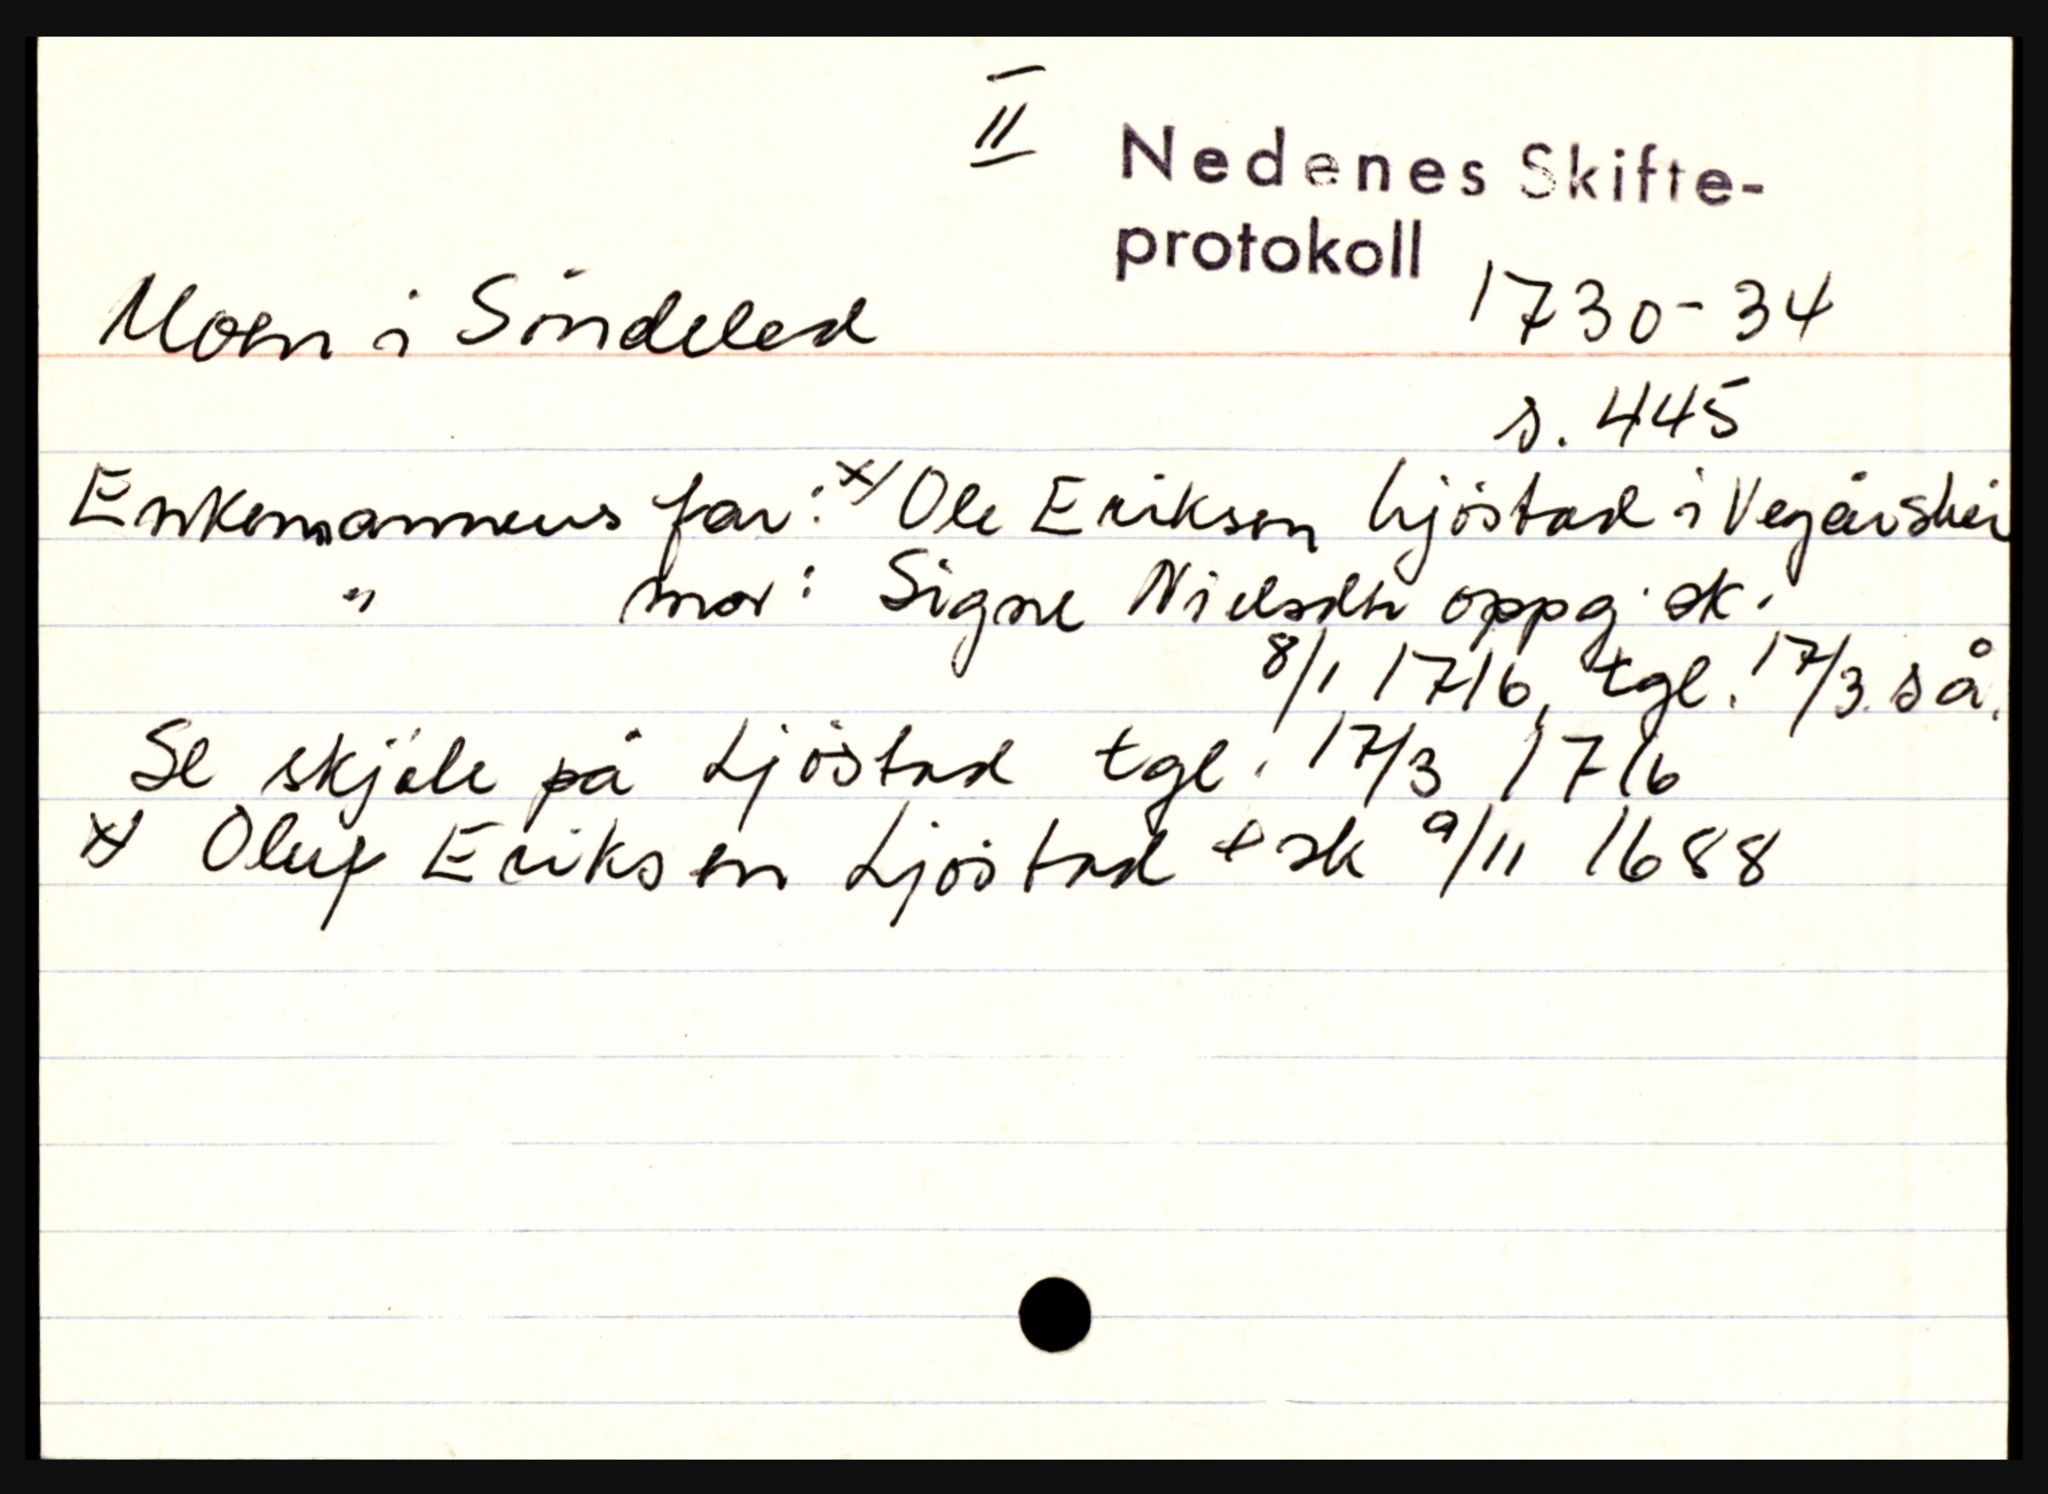 II
Nedenes Skifte-
protokoll
Moen i Söndeled
1730-34
s. 445
Enkemannens far: x) Ole Eriksen Ljöstad i Vegårshei
" mor: Signe Nielsdtr oppg. sk.
8/1 1716, tgl. 17/3. s å.
Se skjöte på Ljöstad tgl. 17/3 1716
x) Oluf Eriksen Ljöstad sk 9/11 1688